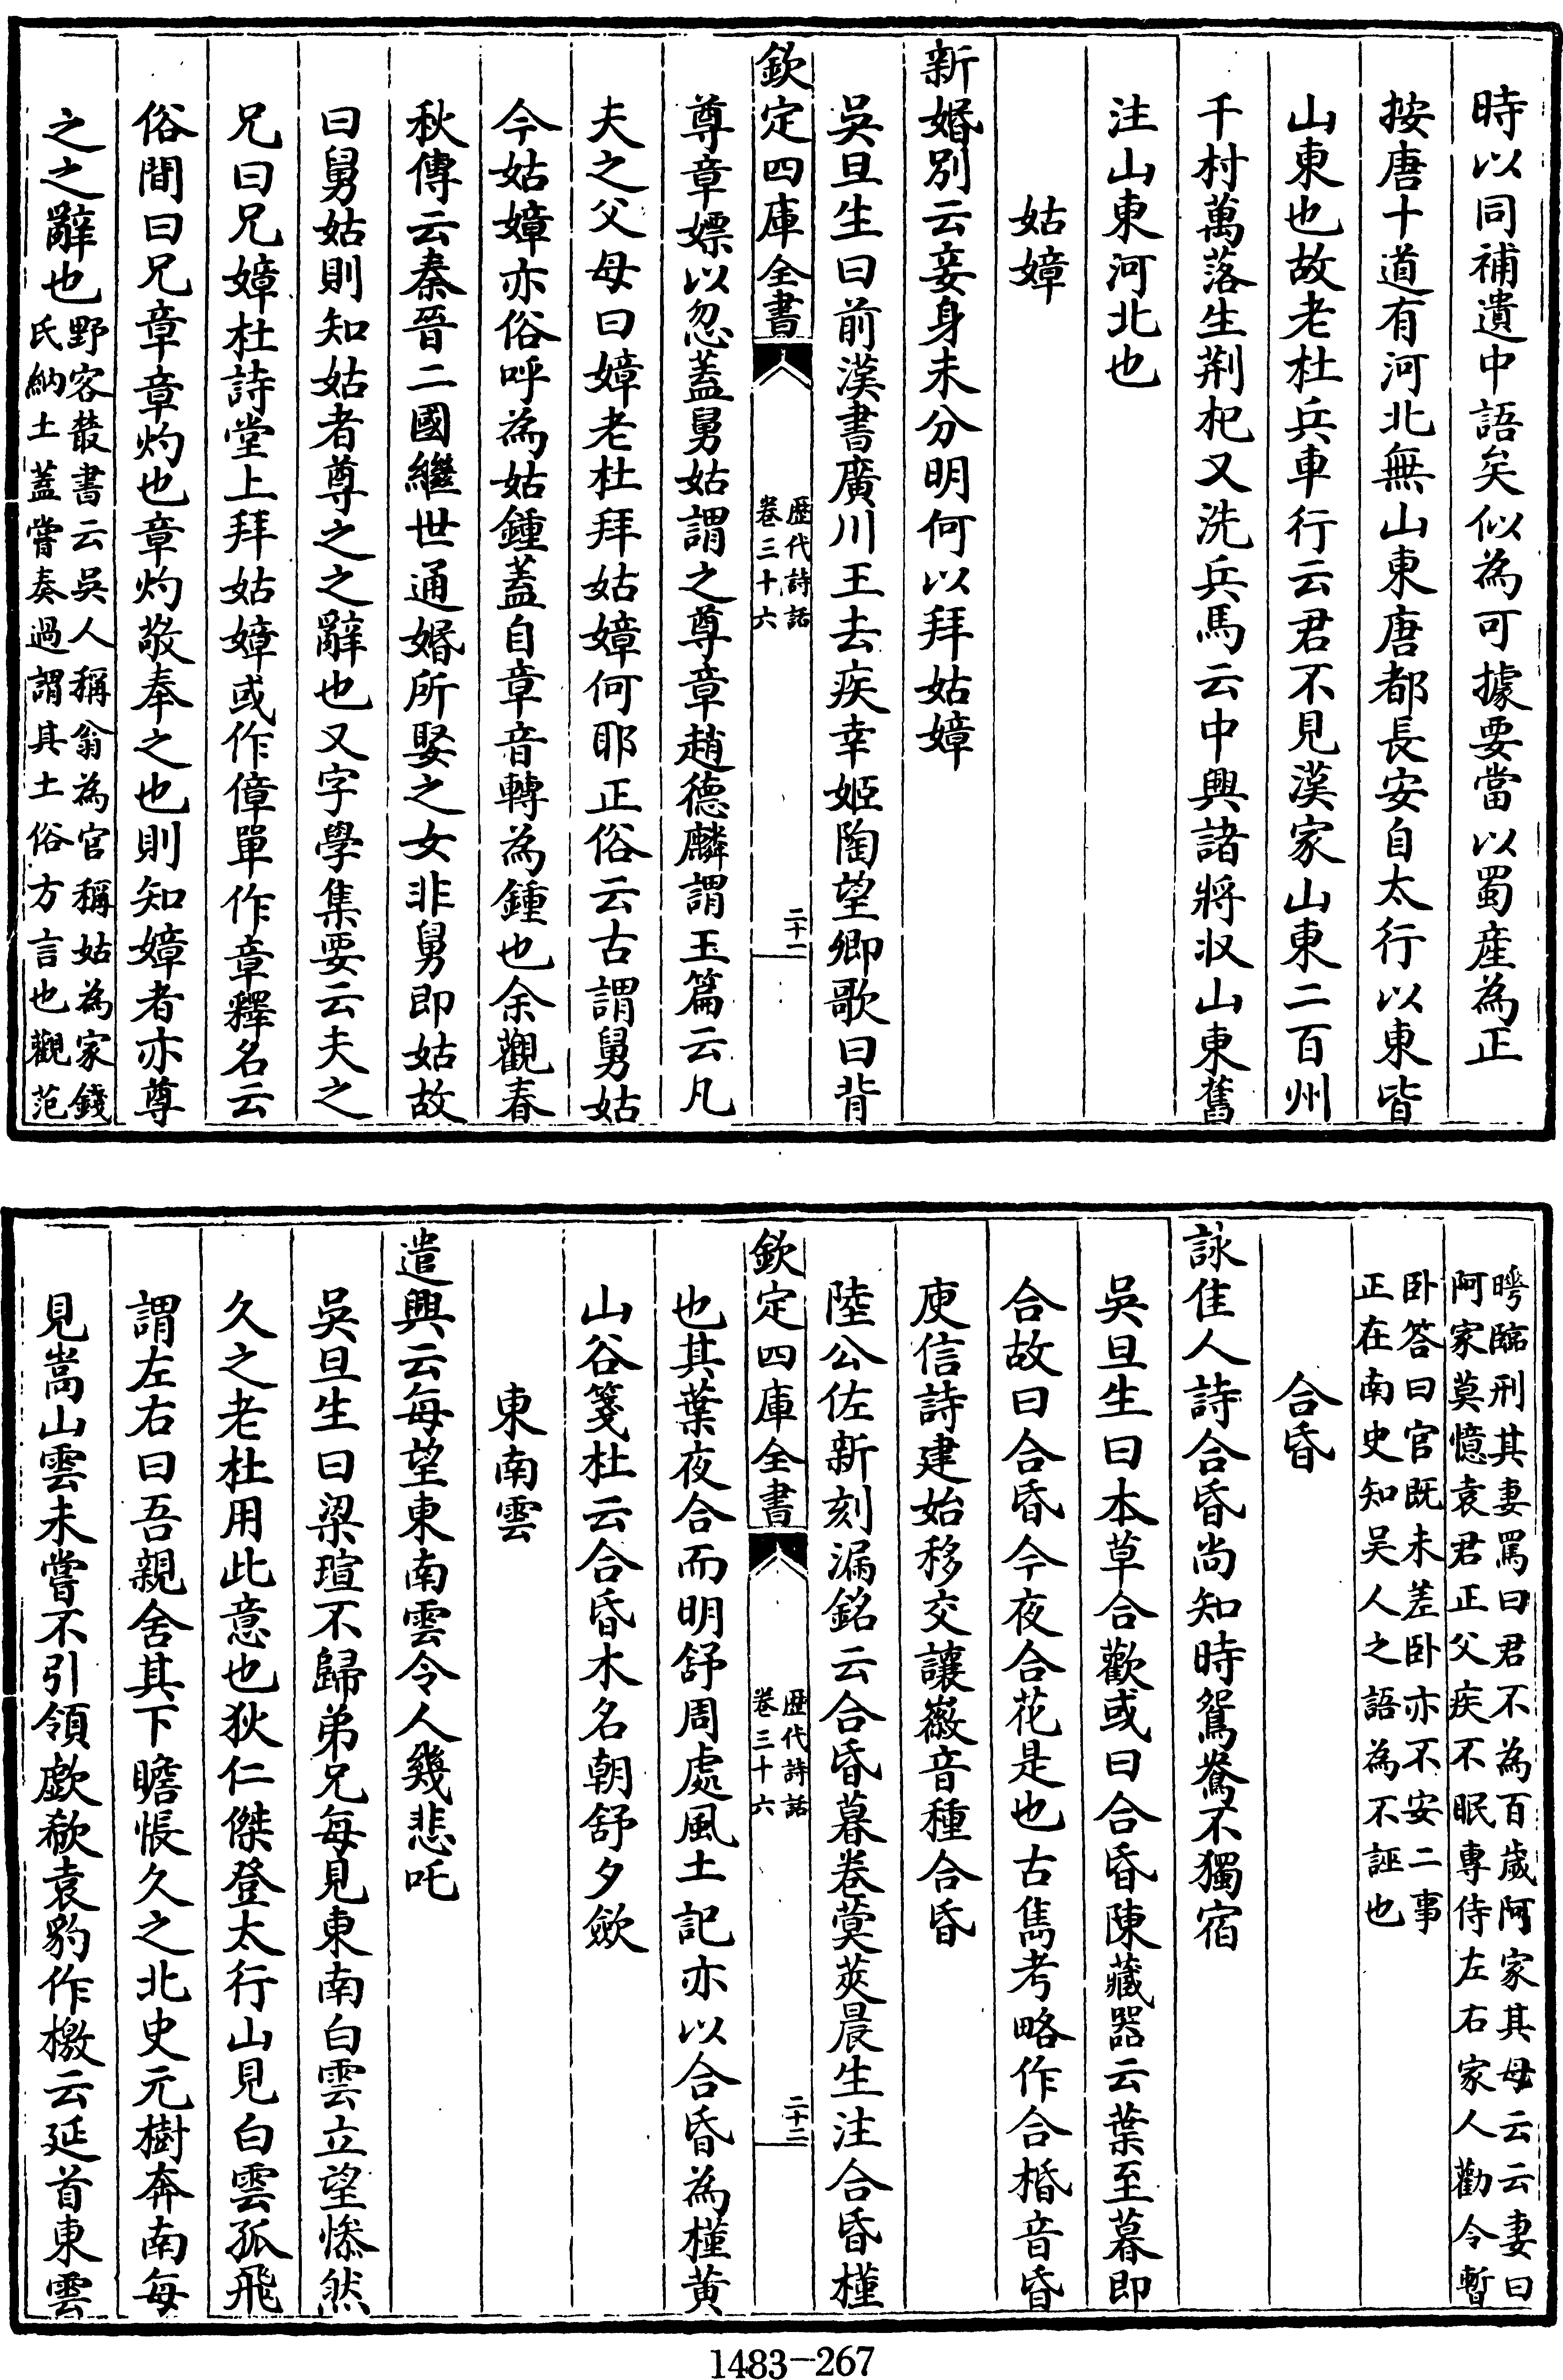 時以同補遺中語矣似為可據要當以蜀産為正
按唐十道有河北無山東唐都長安自太行以東皆
山東也故老杜兵車行云君不見漢家山東二百州
千村萬落生荆杞又洗兵馬云中興諸將収山東舊
注山東河北也
姑嫜
新婚别云妾身未分明何以拜姑嫜
吳旦生曰前漢書廣川王去疾幸姬陶望卿歌曰背
欽定四庫全書
歴代詩話
卷三十六
二十一
尊章嫖以忽蓋舅姑謂之尊章趙德麟謂玉篇云凡
夫之父母曰嫜老杜拜姑嫜何耶正俗云古謂舅姑
今姑嫜亦俗呼為姑鍾蓋自章音轉為鍾也余觀春
秋傳云秦晉二國繼世通婚所娶之女非舅即姑故
曰舅姑則知姑者尊之之辭也又字學集要云夫之
兄曰兄嫜杜詩堂上拜姑嫜或作傽單作章釋名云
俗間曰兄章章灼也章灼敬奉之也則知嫜者亦尊
之之辭也
野客叢書云吳人稱翁為官稱姑為家錢
氏納土蓋嘗奏過謂其土俗方言也觀范
曄臨刑其妻罵曰君不為百歲阿家其母云云妻曰
阿家莫憶袁君正父疾不眠專侍左右家人勸令暫
卧答曰官既未差卧亦不安二事
正在南史知吴人之語為不誣也
合昏
詠佳人詩合昏尚知時鴛鴦不獨宿
吳旦生曰本草合歡或曰合昏陳藏器云葉至暮即
合故曰合昏今夜合花是也古雋考略作合棔音昏
庾信詩建始移交讓徽音種合昏
陸公佐新刻漏銘云合昏暮卷蓂莢晨生注合昏槿
欽定四庫全書
歴代詩話
卷三十六
二十二
也其葉夜合而明舒周處風土記亦以合昏為槿黄
山谷箋杜云合昏木名朝舒夕歛
東南雲
遣興云每望東南雲令人幾悲吒
吳旦生曰梁瑄不歸弟兄每見東南白雲立望慘然
久之老杜用此意也狄仁傑登太行山見白雲孤飛
謂左右曰吾親舍其下瞻悵久之北史元樹奔南每
見嵩山雲未嘗不引領歔欷袁豹作檄云延首東雲
1483-267